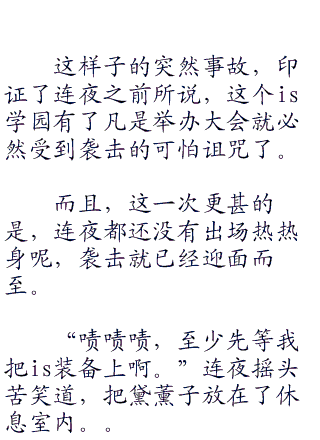 这样子的突然事故，印
证了连夜之前所说，这个is
学园有了凡是举办大会就必
然受到袭击的可怕诅咒了。
而且，这一次更甚的
是，连夜都还没有出场热热
身呢，袭击就已经迎面而
至。
“啧啧啧，至少先等我
把is装备上啊。”连夜摇头
苦笑道，把黛薰子放在了休
息室内。。